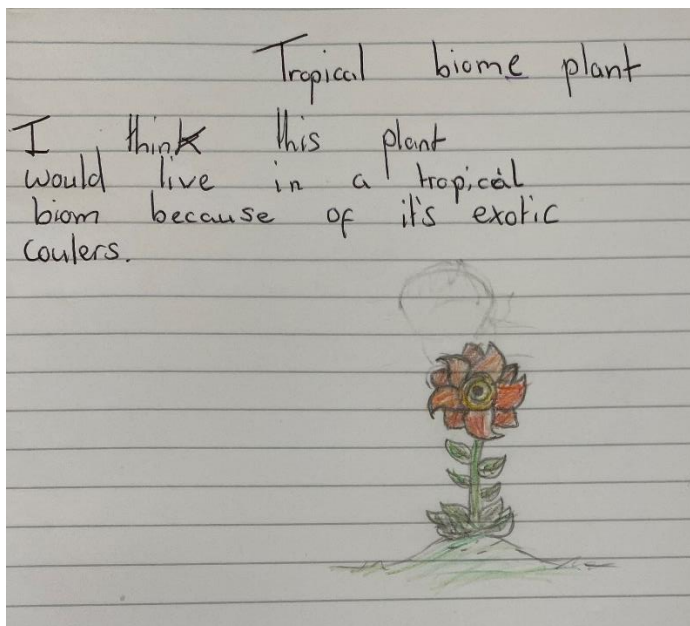 Tropical biome plant
I think this plant
would live in a tropical
biom because of it's exotic
coulers.